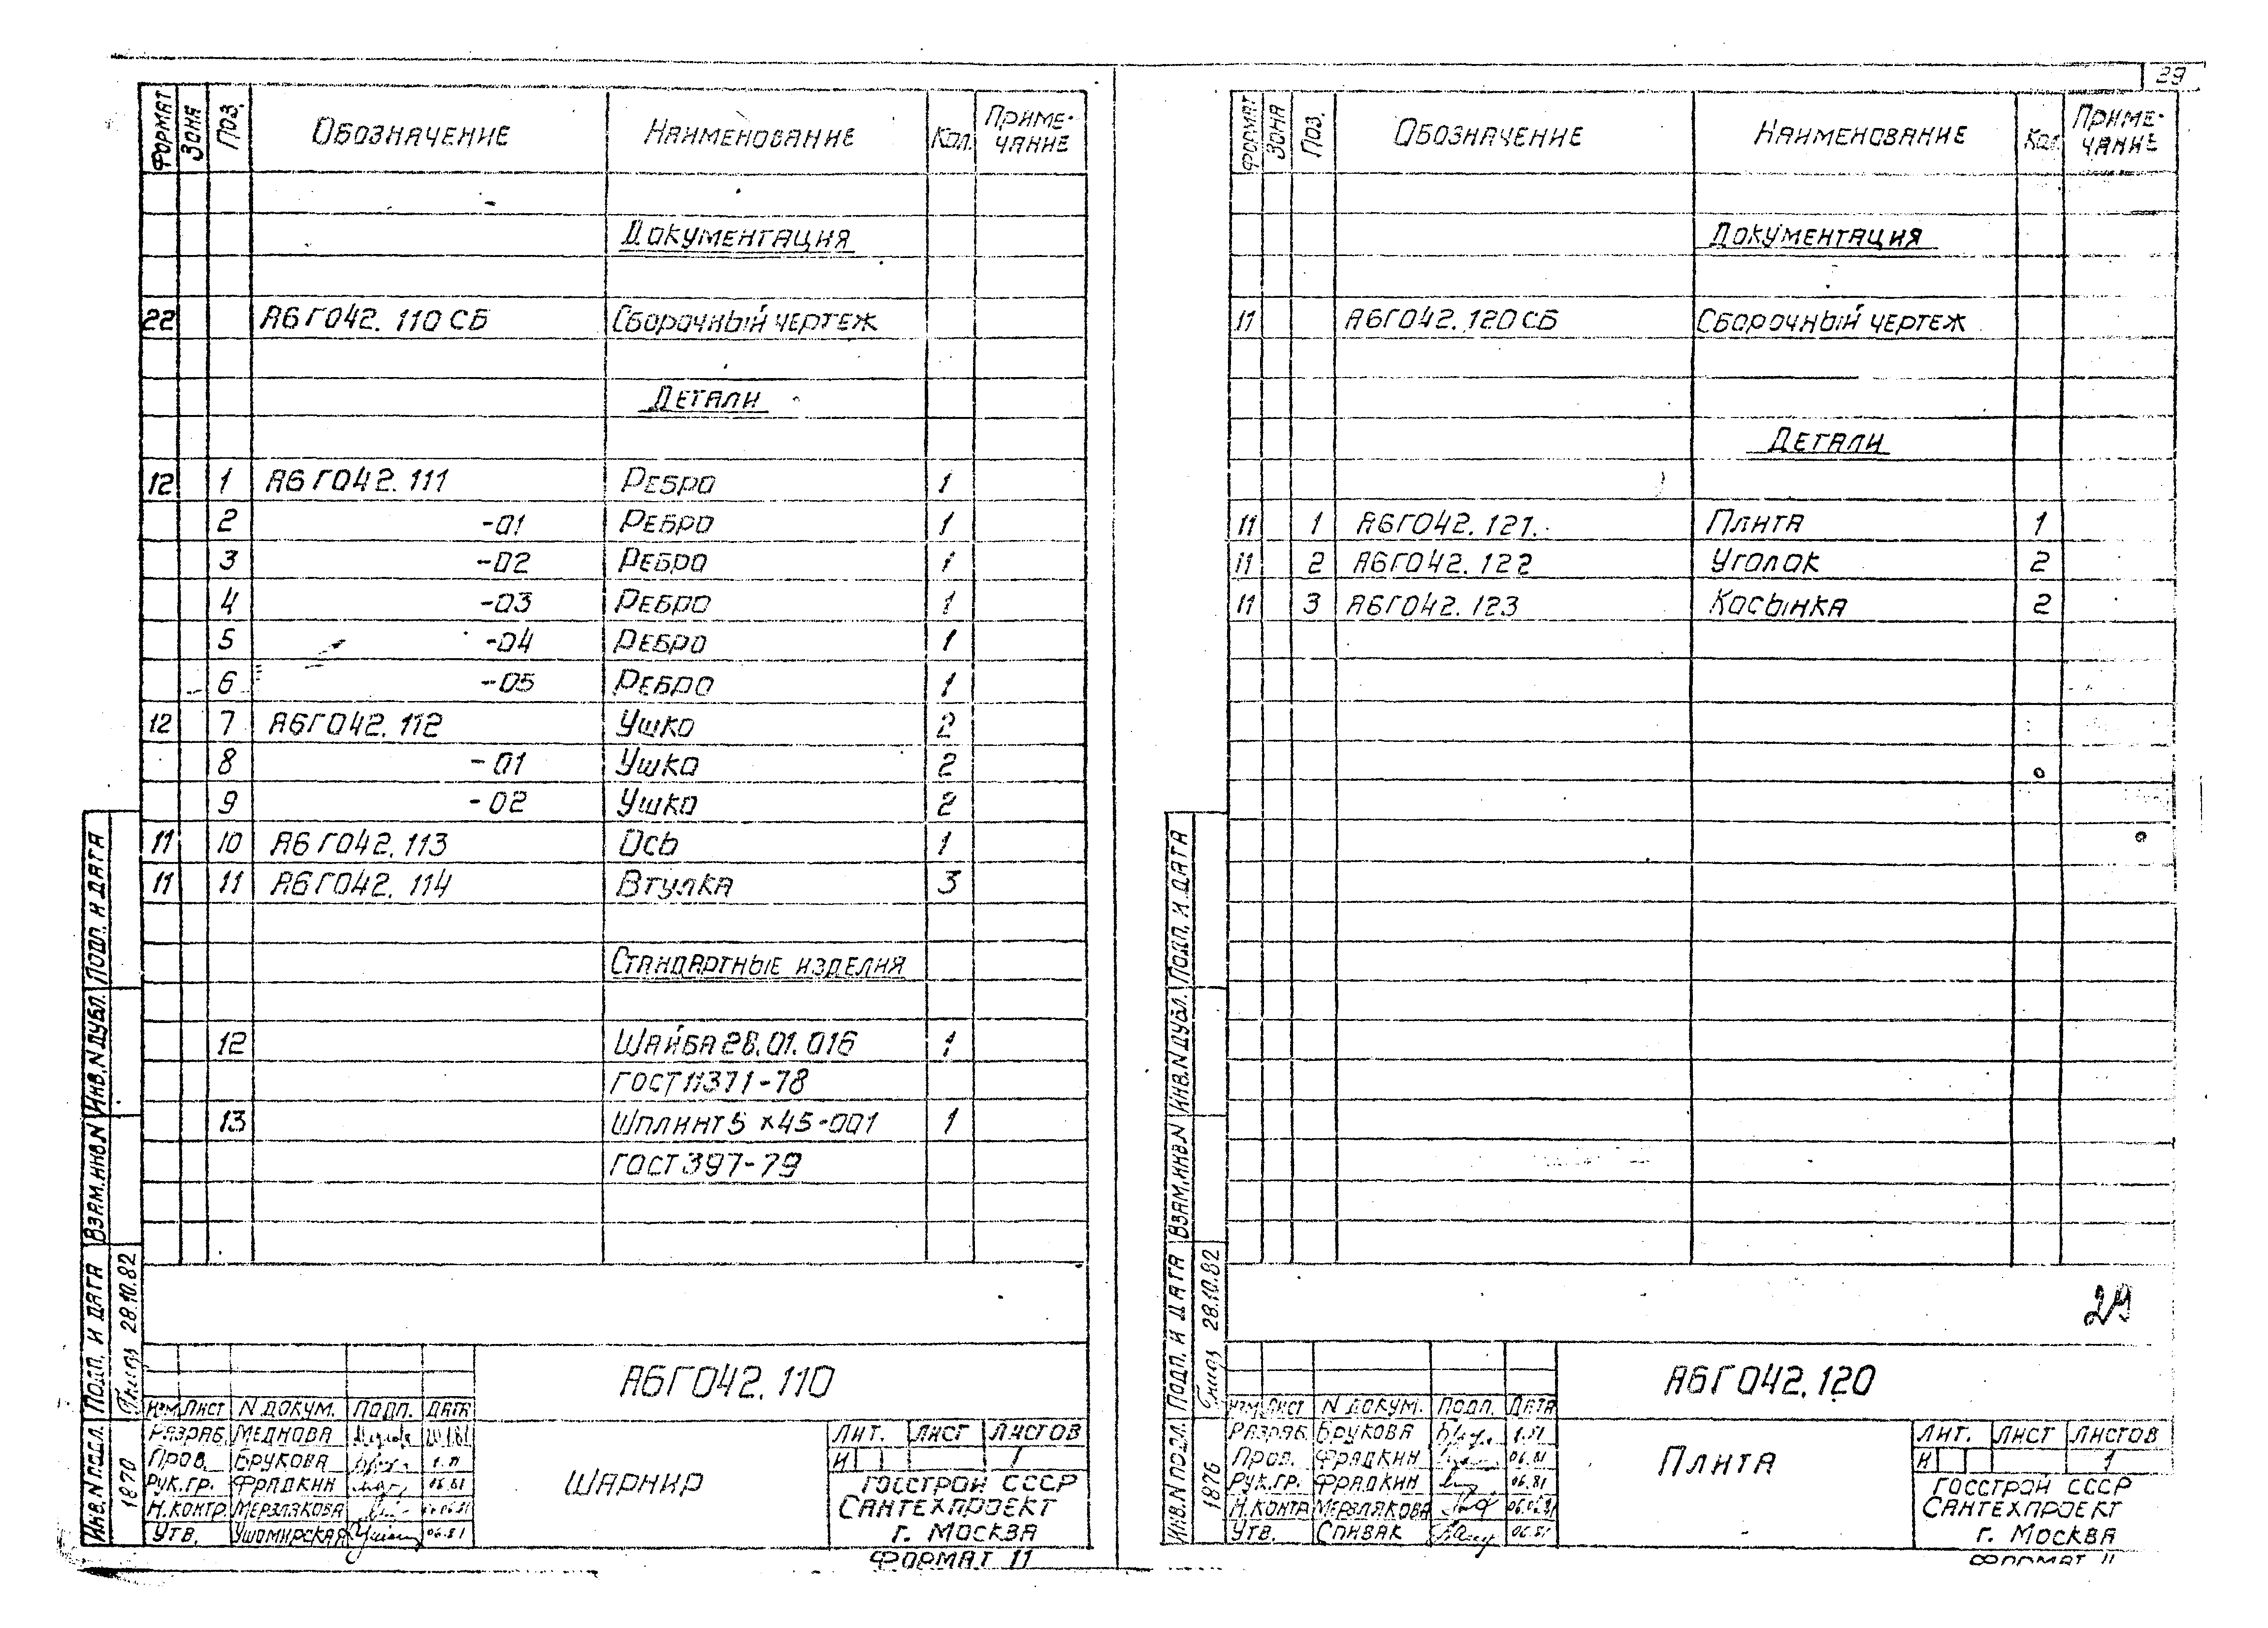 29
ФОРМАТ ЗОНА ПОЗ. ОБОЗНАЧЕНИЕ НАИМЕНОВАНИЕ КОЛ. ПРИМЕ-ЧАНИЕ
ДОКУМЕНТАЦИЯ
22 А6Г042.110 СБ СБОРОЧНЫЙ ЧЕРТЕЖ
ДЕТАЛИ
12 1 А6Г042.111 РЕБРО 1
2 -01 РЕБРО 1
3 -02 РЕБРО 1
4 -03 РЕБРО 1
5 -04 РЕБРО 1
6 -05 РЕБРО 1
12 7 А6Г042.112 УШКО 2
8 -01 УШКО 2
9 -02 УШКО 2
11 10 А6Г042.113 ОСЬ 1
11 11 А6Г042.114 ВТУЛКА 3
СТАНДАРТНЫЕ ИЗДЕЛИЯ
12 ШАЙБА 28.01.016 1
ГОСТ 11371-78
13 ШПЛИНТ 5 х 45-001 1
ГОСТ 397-79
ИНВ.N ПОДЛ. ПОДП. И ДАТА ВЗАМ.ИНВ.N ИНВ.N ДУБЛ. ПОДП. И ДАТА
1870 28.10.82
А6Г042.110
ИЗМ ЛИСТ N ДОКУМ. ПОДП. ДАТА
РАЗРАБ. МЕДНОВА
ПРОВ. БРУКОВА
РУК.ГР. ФРАДКИН 06.81
Н.КОНТР. МЕРЗЛЯКОВА
УТВ. УШОМИРСКАЯ 06.81
ШАРНИР
ЛИТ. ЛИСТ ЛИСТОВ
И 1
ГОССТРОЙ СССР
САНТЕХПРОЕКТ
г. МОСКВА
ФОРМАТ 11
ФОРМАТ ЗОНА ПОЗ. ОБОЗНАЧЕНИЕ НАИМЕНОВАНИЕ КОЛ. ПРИМЕ-ЧАНИЕ
ДОКУМЕНТАЦИЯ
11 А6Г042.120 СБ СБОРОЧНЫЙ ЧЕРТЕЖ
ДЕТАЛИ
11 1 А6Г042.121. ПЛИТА 1
11 2 А6Г042.122 УГОЛОК 2
11 3 А6Г042.123 КОСЫНКА 2
29
ИНВ.N ПОДЛ. ПОДП. И ДАТА ВЗАМ.ИНВ.N ИНВ.N ДУБЛ. ПОДП. И ДАТА
1876 28.10.82
А6Г042.120
ИЗМ ЛИСТ N ДОКУМ. ПОДП. ДАТА
РАЗРАБ. БРУКОВА
ПРОВ. ФРАДКИН 06.81
РУК.ГР. ФРАДКИН 06.81
Н.КОНТР МЕРЗЛЯКОВА
УТВ. СПИВАК 06.81
ПЛИТА
ЛИТ. ЛИСТ ЛИСТОВ
И 1
ГОССТРОЙ СССР
САНТЕХПРОЕКТ
г. МОСКВА
ФОРМАТ 11